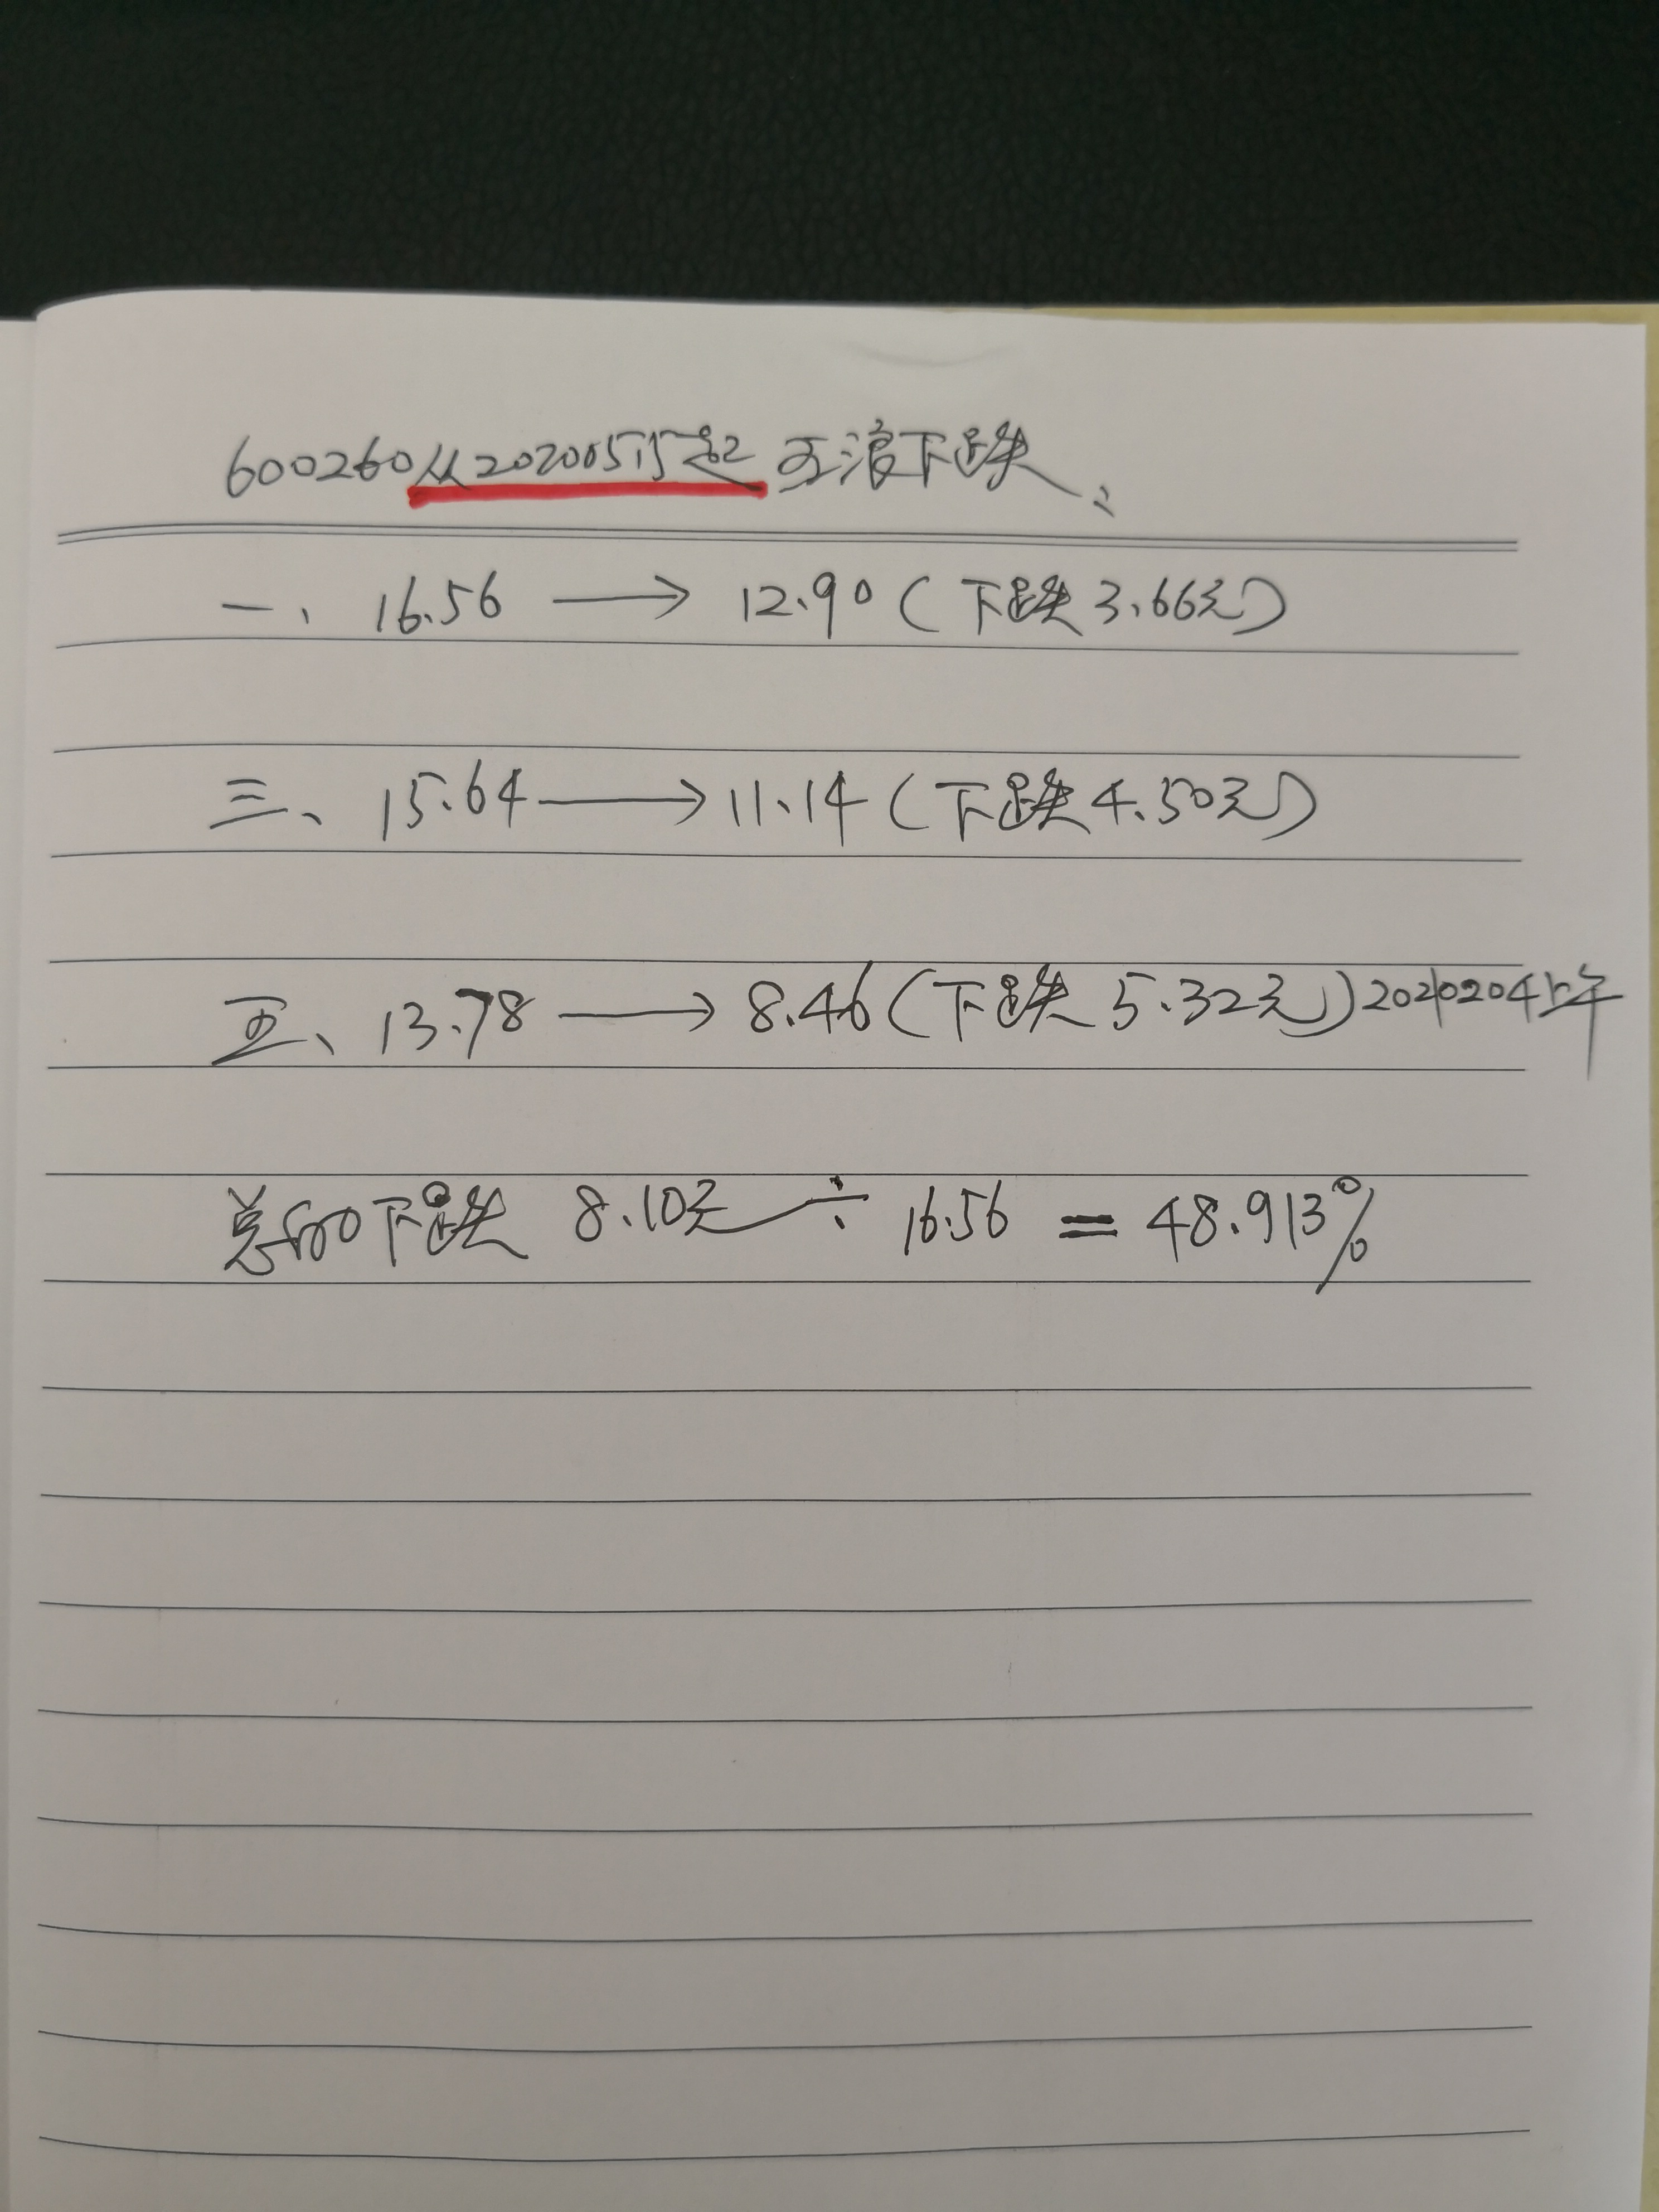 600260从20200515起五浪下跌:
一、16.56 → 12.90(下跌3.66元)
三、15.64 → 11.14(下跌4.50元)
五、13.78 → 8.46(下跌5.32元)20210204上午
总的下跌 8.10元 ÷ 16.56 = 48.913%